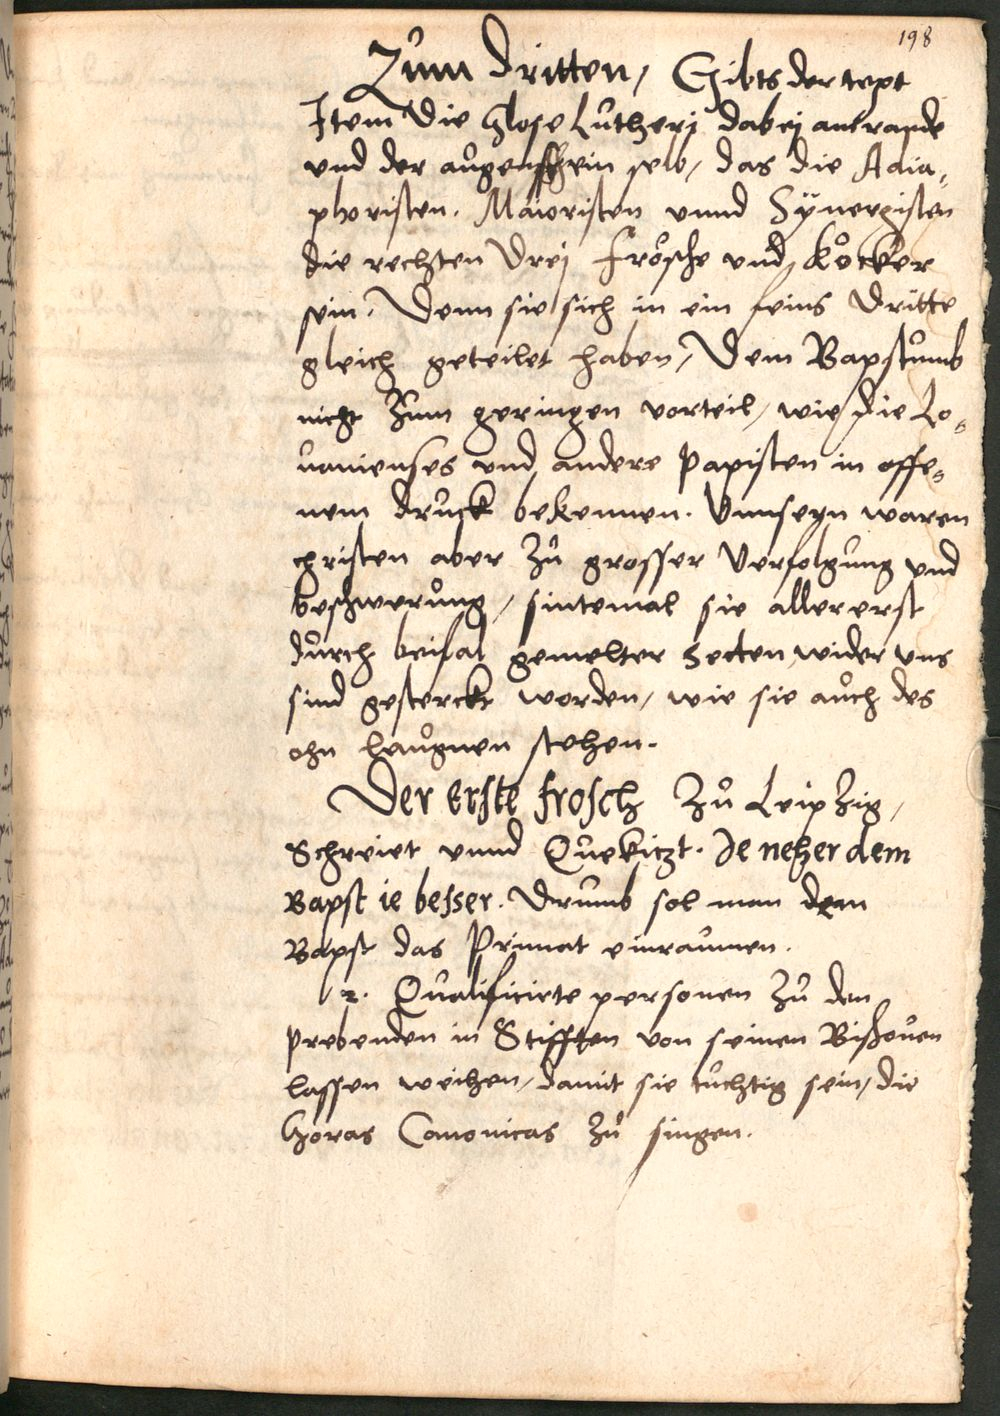 198
Zum Dritten, Gibts der text
Item Die Glose Lutheri dabej am rande
vnd der augenschein selb, das die Adia-
phoristen. Maioristen vnnd Sÿnergisten
die rechten Drej Frösche vnd Köcker
sein. Denn sie sich in ein feins Dritte
gleich geteilet haben, Dem Bapstumb
nicht Zum geringen vorteil, wie die Lo-
uanienses vnd andere Papisten in offe-
nem druck bekennen. Vnnseyn waren
christen aber Zu grosser Verfolgung vnd
beschwerung, sintemal sie allererst
durch beifal gemelter Secten wider vns
sind gesterckt worden, wie sie auch des
ohn laugnen stehen.
Der Erste frosch Zu Leipzig,
Schreiet vnnd Quekiczt. Je neher dem
Bapst ie besser. Drumb sol man dem
Bapst das Primat einraumen.
2. Qualificirte personen Zu den
Prebenden in Stifften von seinen Bischouen
lassen weihen, damit sie tuchtig sein, die
Horas Canonicas Zu singen.